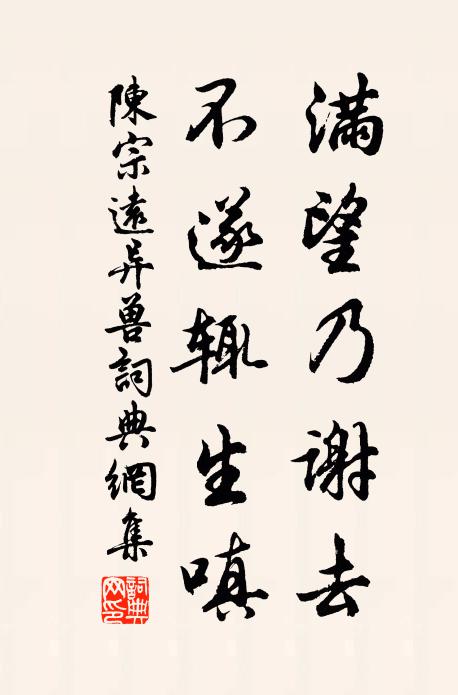 滿望乃謝去
不遂辄生嗔
陳宗遠异兽詞典網集
詞典網印